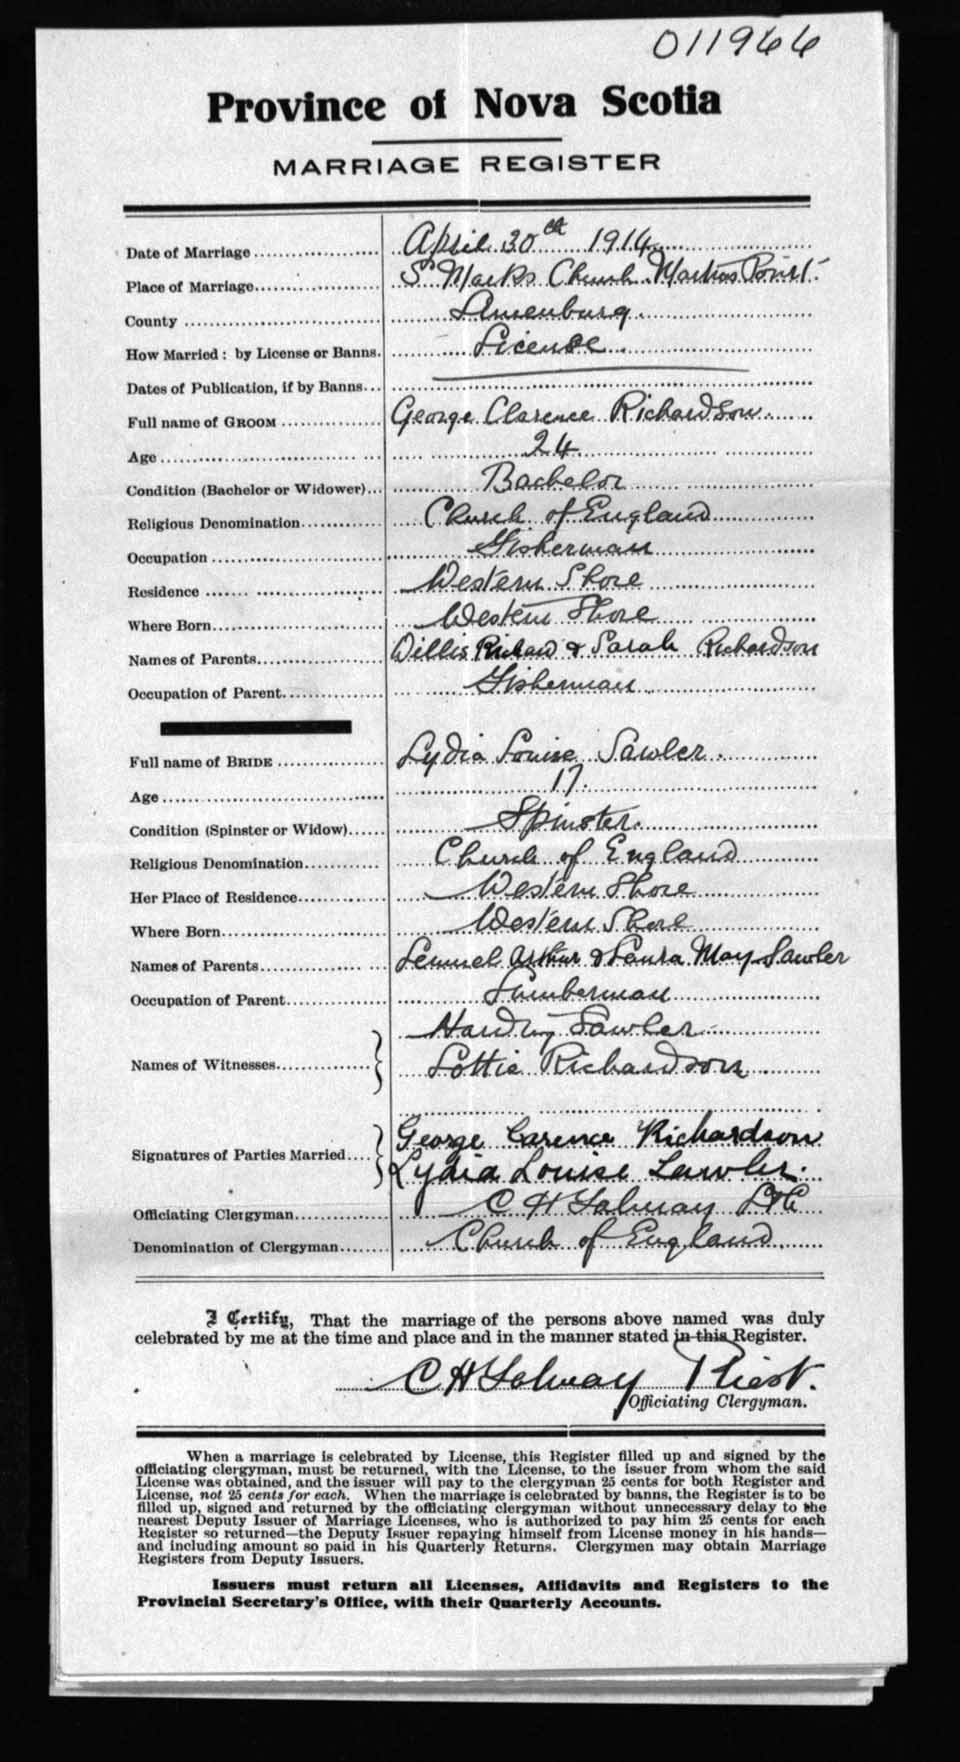 011966
Province of Nova Scotia
MARRIAGE REGISTER
Date of Marriage April 30th 1914
Place of Marriage St Marks Church Martins Point
County Lunenburg
How Married: by License or Banns. License
Dates of Publication, if by Banns
Full name of GROOM George Clarence Richardson
Age 24
Condition (Bachelor or Widower) Bachelor
Religious Denomination Church of England
Occupation Fisherman
Residence Western Shore
Where Born Western Shore
Names of Parents Willis Richard & Sarah Richardson
Occupation of Parent Fisherman
Full name of BRIDE Lydia Louise Sawler
Age 17
Condition (Spinster or Widow) Spinster
Religious Denomination Church of England
Her Place of Residence Western Shore
Where Born Western Shore
Names of Parents Lemuel Arthur & Laura May Sawler
Occupation of Parent Lumberman
Harding Sawler
Names of Witnesses Lottie Richardson
George Carence Richardson
Signatures of Parties Married Lydia Louise Sawler.
Officiating Clergyman C H Talmay
Denomination of Clergyman Church of England
I Certify, That the marriage of the persons above named was duly
celebrated by me at the time and place and in the manner stated in this Register.
C H Talmay Priest.
Officiating Clergyman.
When a marriage is celebrated by License, this Register filled up and signed by the
officiating clergyman, must be returned, with the License, to the issuer from whom the said
License was obtained, and the issuer will pay to the clergyman 25 cents for both Register and
License, not 25 cents for each. When the marriage is celebrated by banns, the Register is to be
filled up, signed and returned by the officiating clergyman without unnecessary delay to the
nearest Deputy Issuer of Marriage Licenses, who is authorized to pay him 25 cents for each
Register so returned—the Deputy Issuer repaying himself from License money in his hands—
and including amount so paid in his Quarterly Returns. Clergymen may obtain Marriage
Registers from Deputy Issuers.
Issuers must return all Licenses, Affidavits and Registers to the
Provincial Secretary's Office, with their Quarterly Accounts.